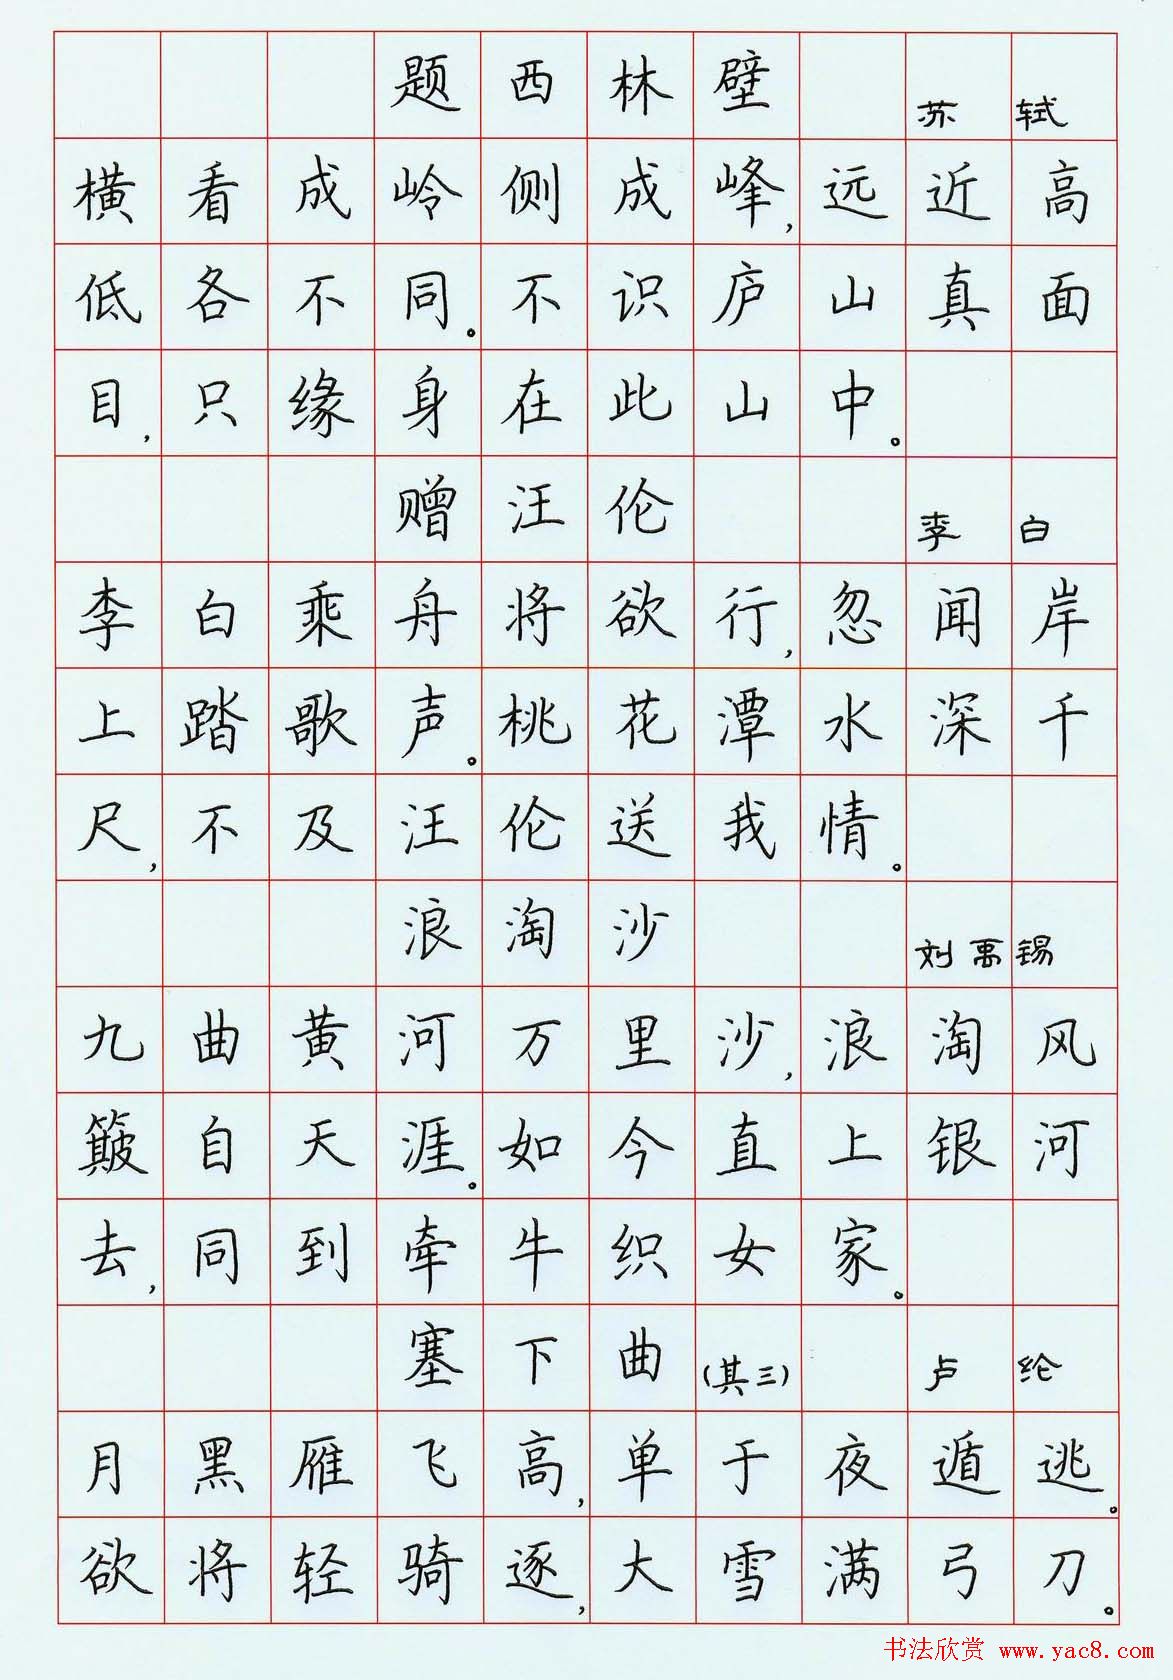 题西林壁 苏轼
横看成岭侧成峰,远近高
低各不同。不识庐山真面
目,只缘身在此山中。
赠汪伦 李白
李白乘舟将欲行,忽闻岸
上踏歌声。桃花潭水深千
尺,不及汪伦送我情。
浪淘沙 刘禹锡
九曲黄河万里沙,浪淘风
簸自天涯。如今直上银河
去,同到牵牛织女家。
塞下曲(其三) 卢纶
月黑雁飞高,单于夜遁逃。
欲将轻骑逐,大雪满弓刀。
书法欣赏 www.yac8.com